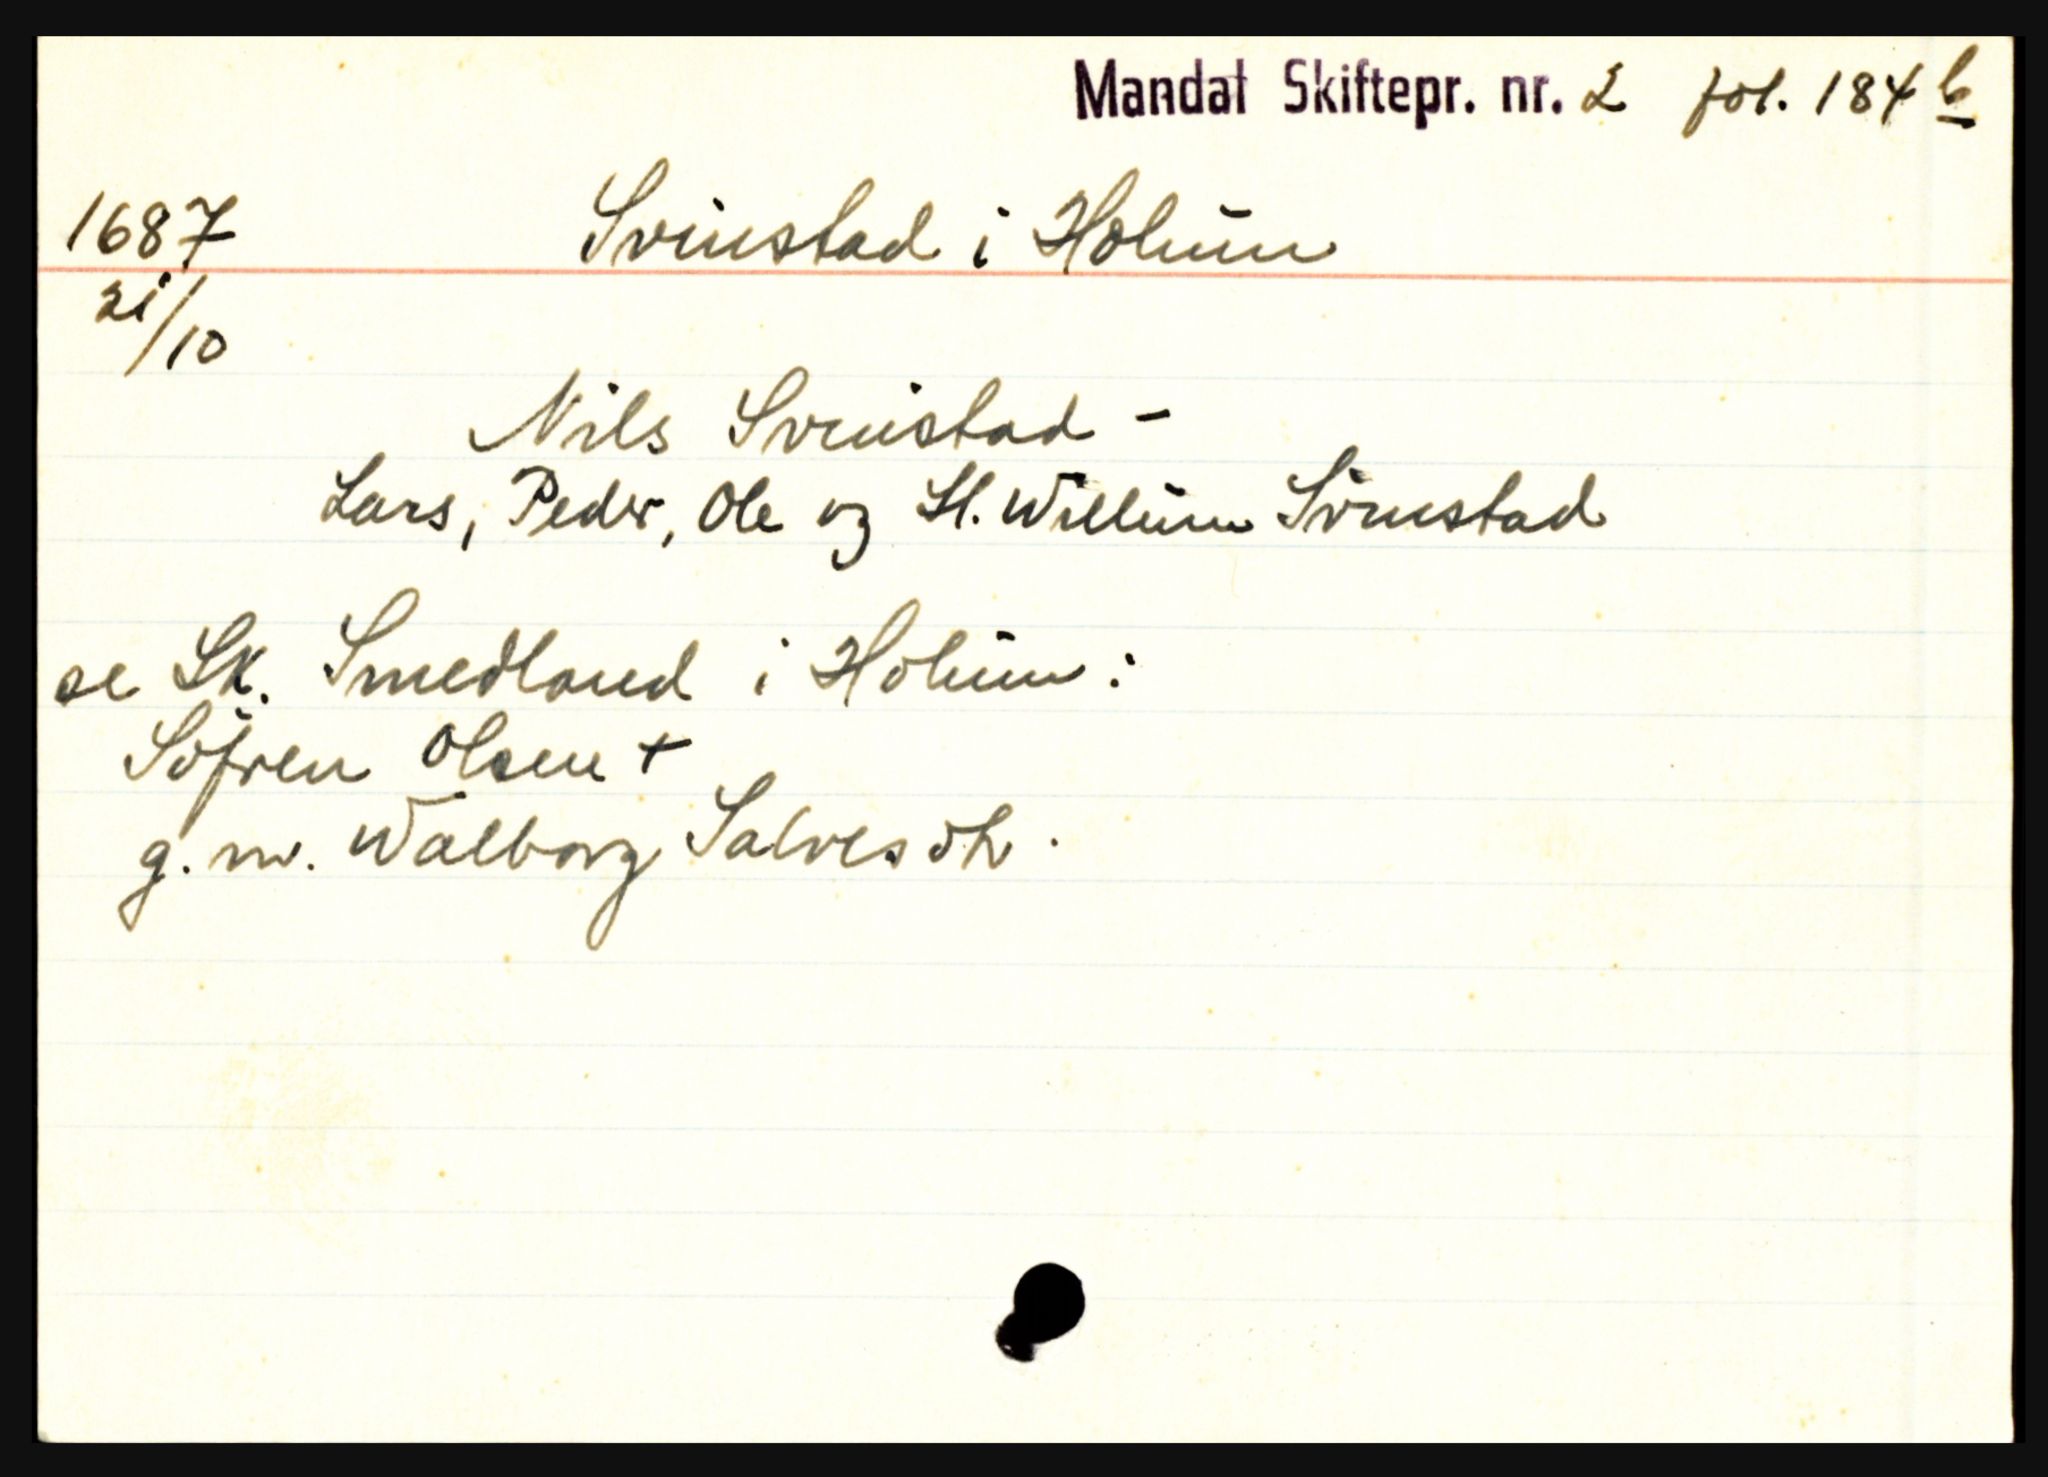 Mandal Skiftepr. nr. 2 fol. 184 b
1687 Svinstad i Holum
21/10
Nils Svinstad -
Lars, Peder, Ole og Sl. Willum Svinstad
se Sk. Smedland i Holum :
Söfren Olsen +
g. m. Walborg Salves dtr.